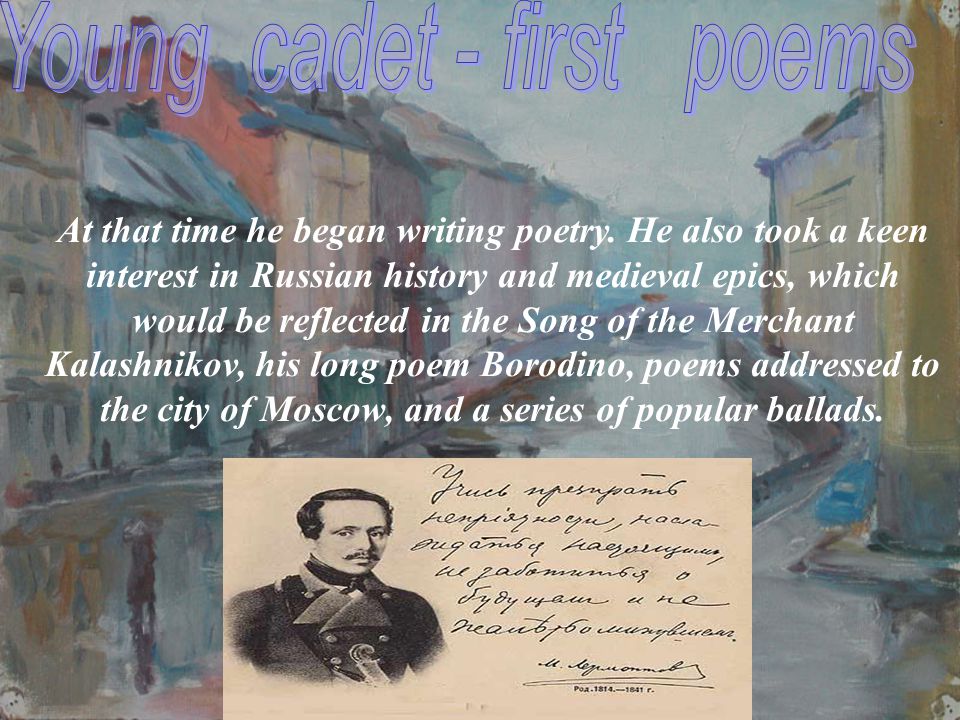 Young cadet - first poems
At that time he began writing poetry. He also took a keen
interest in Russian history and medieval epics, which
would be reflected in the Song of the Merchant
Kalashnikov, his long poem Borodino, poems addressed to
the city of Moscow, and a series of popular ballads.
Учись презирать
непріязности, насла-
ждаться настоящимъ,
не заботиться о
будущемъ и не
жалѣть о минувшемъ.
М. Лермонтов
Род. 1814.—1841 г.